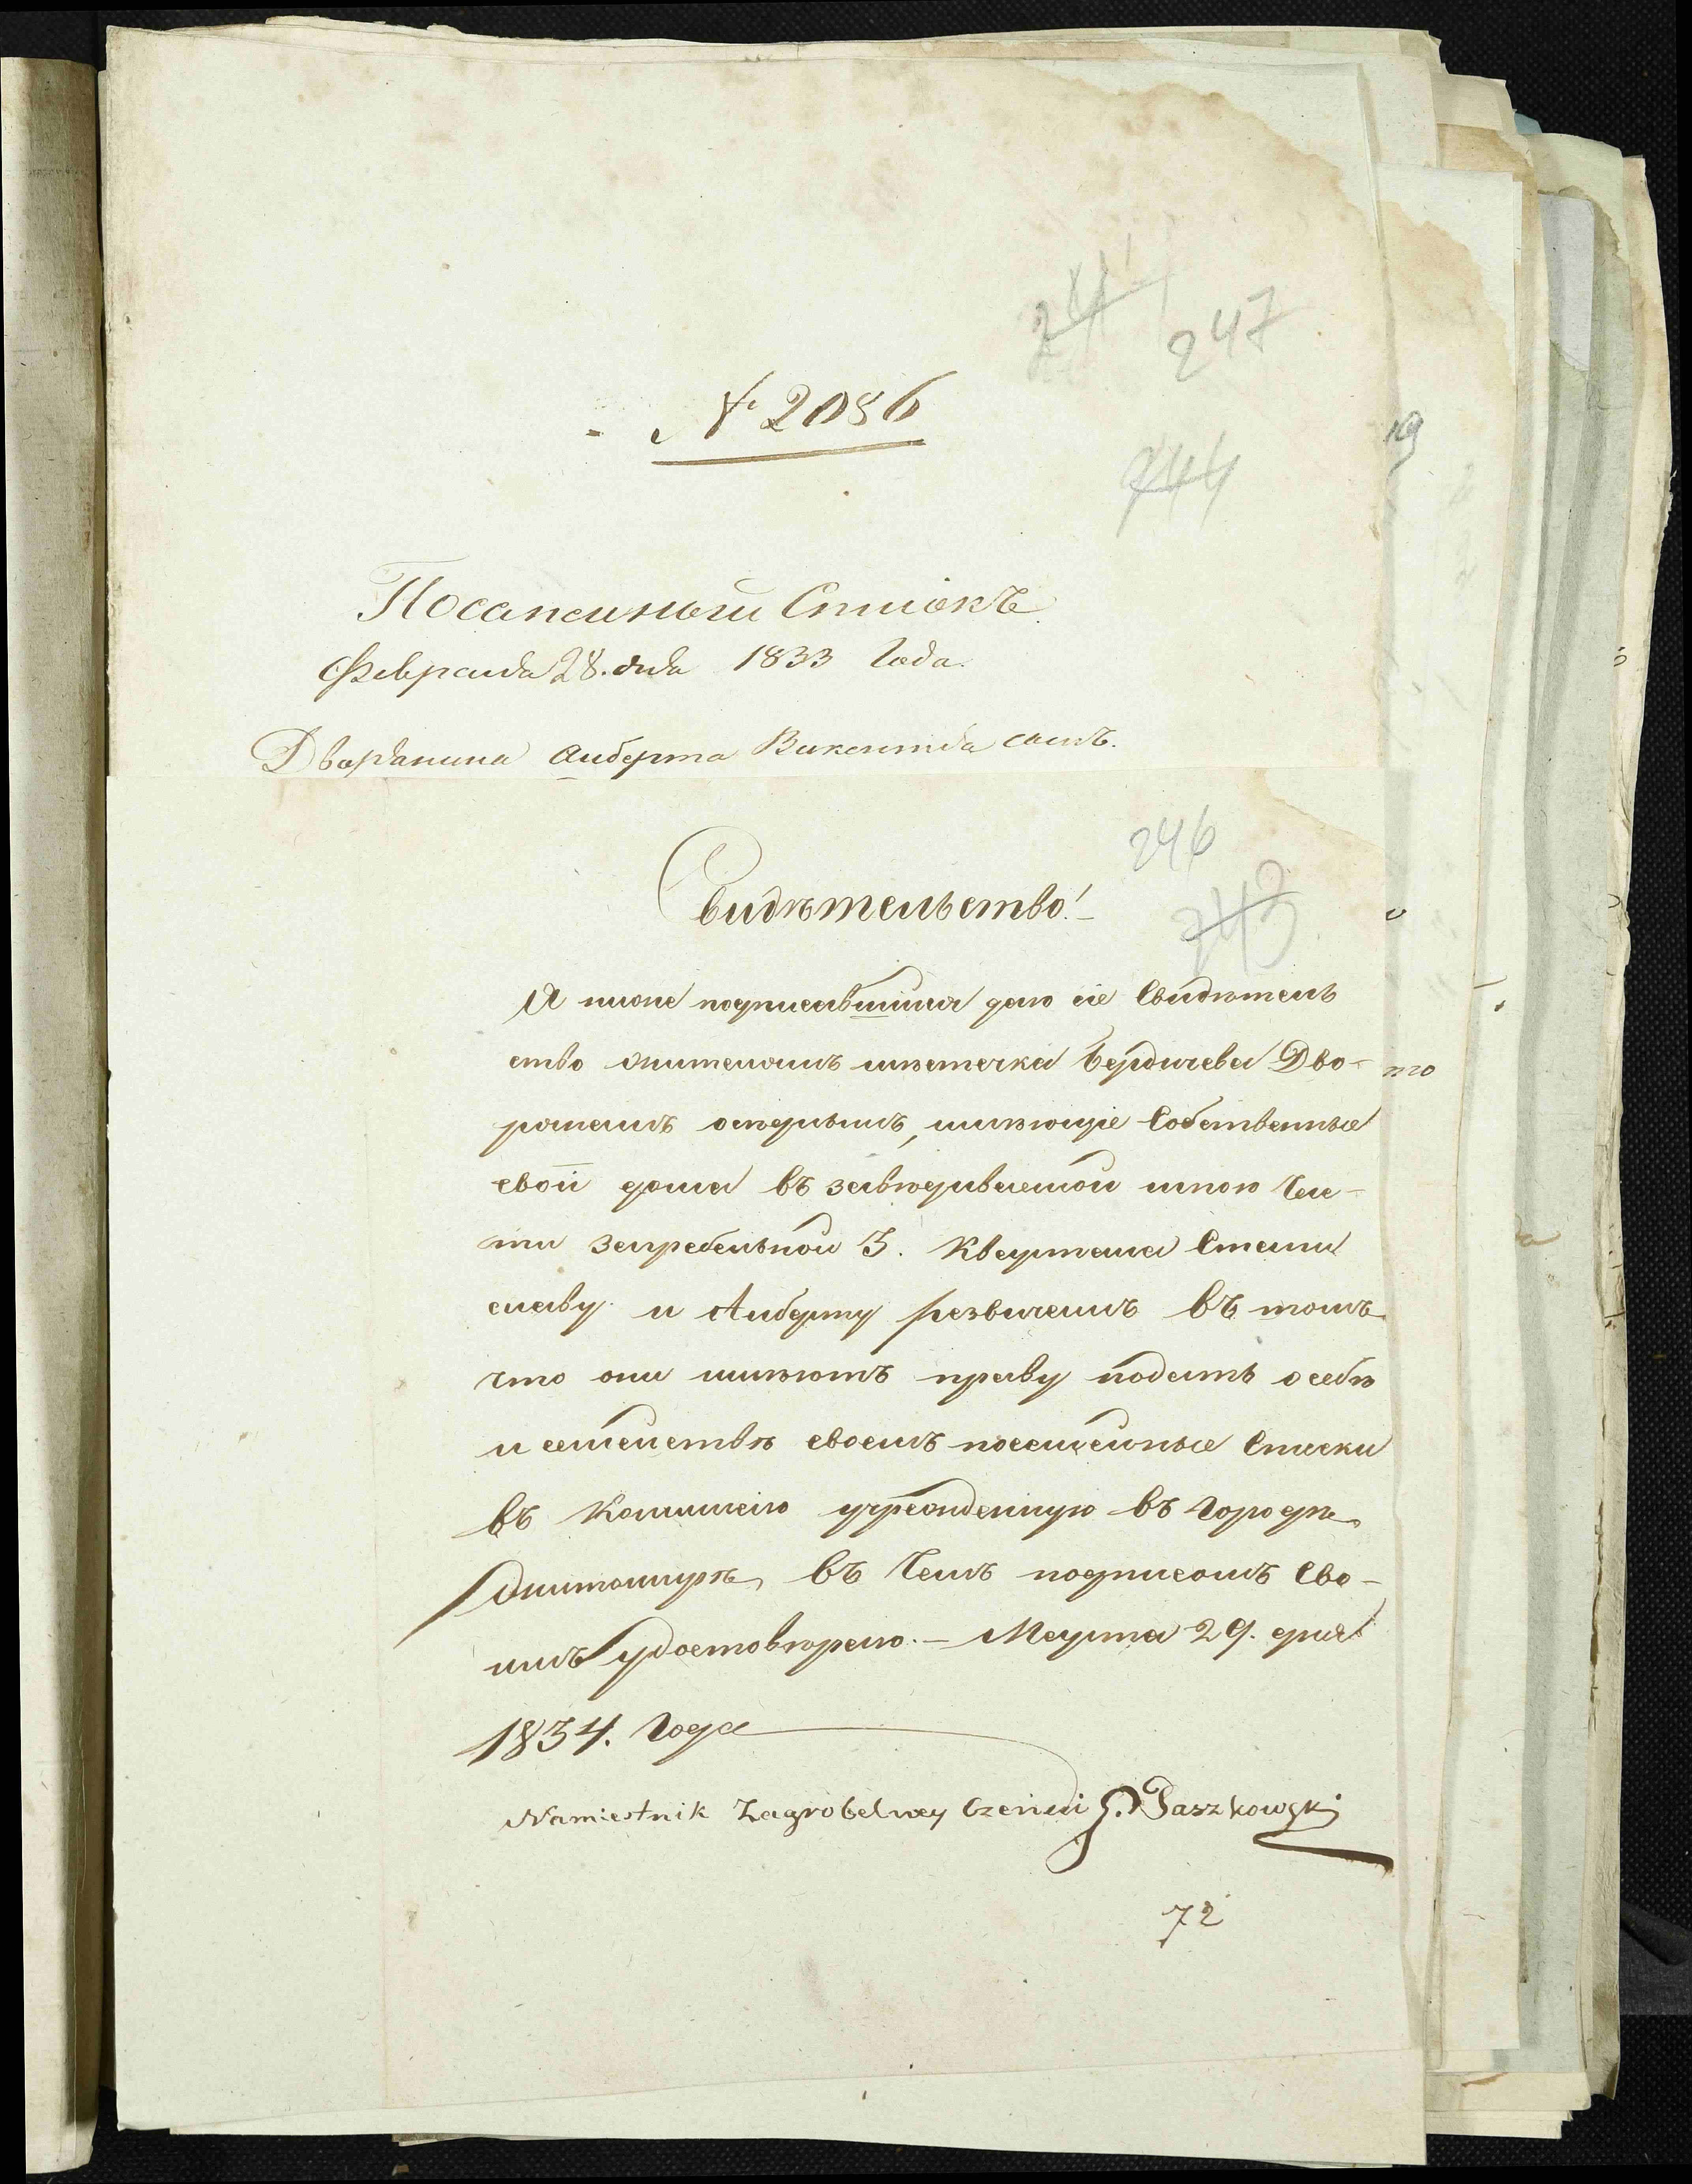 241
247
№ 2086
244
Посапсиный Списокъ
Февраля 28. дня 1833 Года.
Дворянина Алберта Викентія сынъ.
246
243
Свидѣтельство!
Я ниже подписавшійся даю сіе Свидѣтель
ство жителямъ мѣстечка Бердичева Дво-
рянамъ осѣдлымъ, имѣющіе Собственные
свои дома въ завѣдиваемой мною Час-
ти Загребельной 3. Квартала Стани
славу и Алберту въ томъ
что они имѣютъ праву подать о себѣ
и семействѣ своемъ посемейные Списки
въ Коммисію учрежденную въ Городѣ
Житомирѣ, въ Чемъ подписомъ Сво-
имъ удостовѣряю. — Марта 29. дня
1834. Года
Namiestnik Zagrobelney Części J. Paszkowski
72